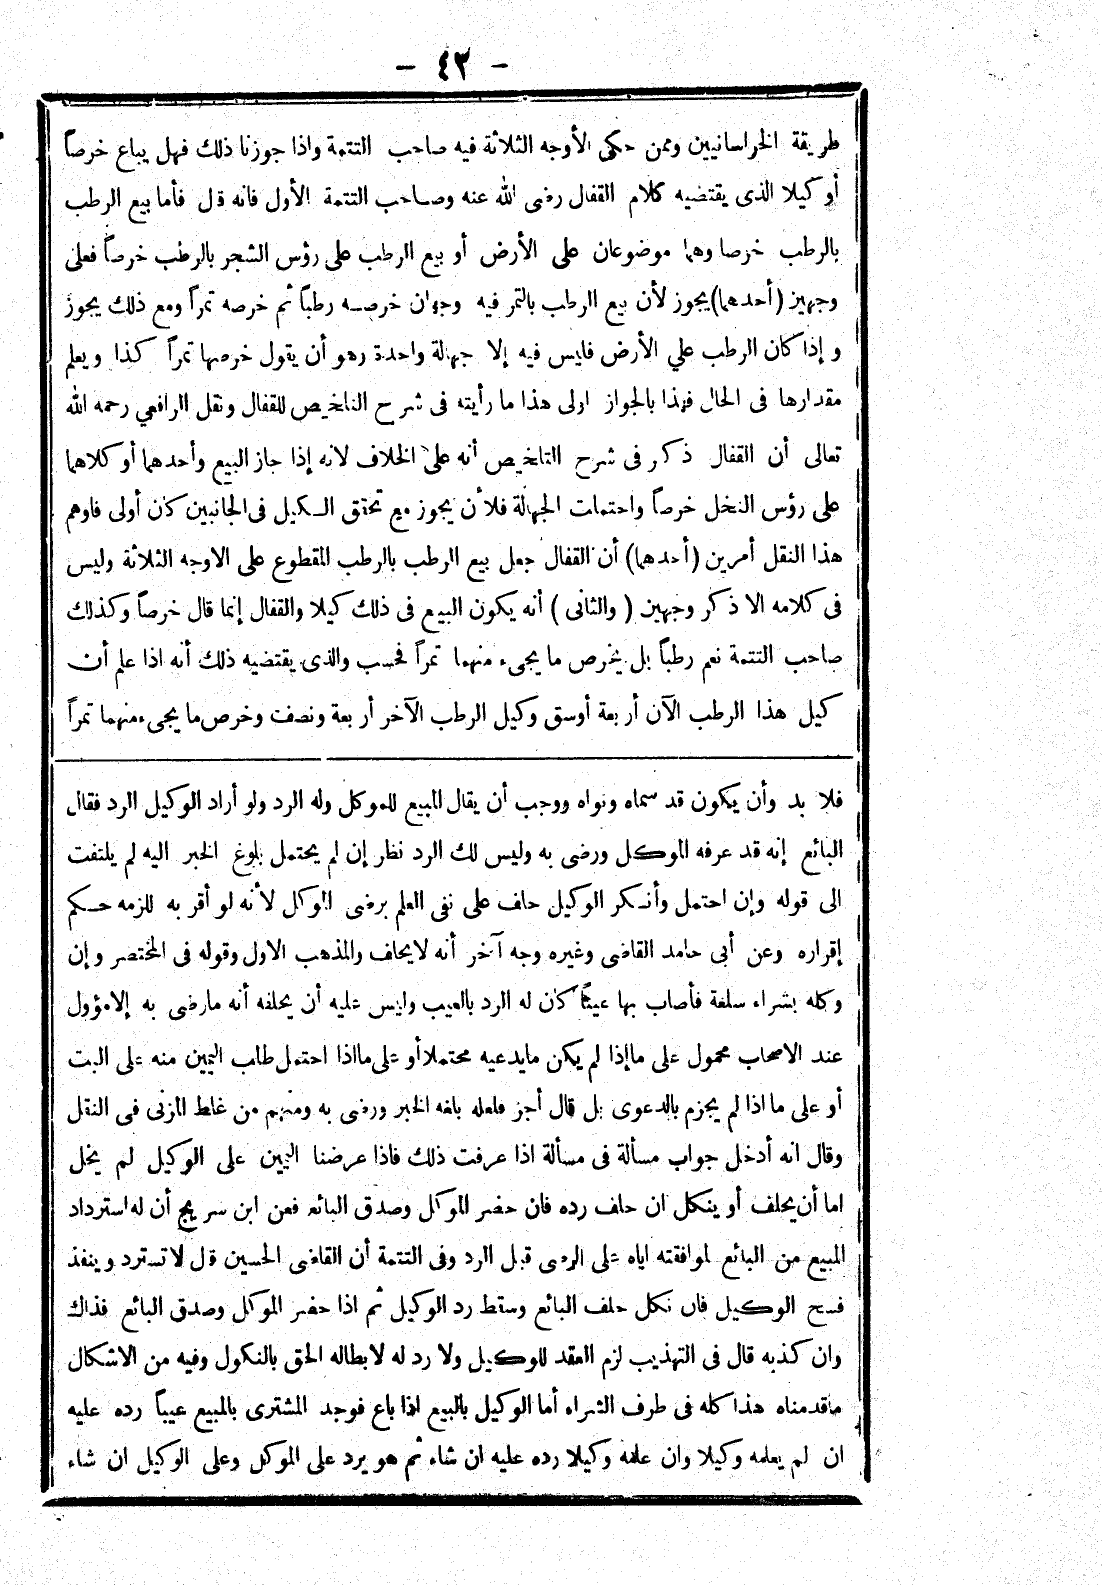 - ٤٣ -
طريقة الخراسانيين وممن حكى الأوجه الثلاثة فيه صاحب التتمة واذا جوزنا ذلك فهل يباع خرصاً
أو كيلا الذى يقتضيه كلام القفال رضى الله عنه وصاحب التتمة الأول فانه قال فأما بيع الرطب
بالرطب خرصا وهما موضوعان على الأرض أو بيع الرطب على رؤس الشجر بالرطب خرصاً فعلى
وجهين (أحدهما) يجوز لأن بيع الرطب بالتمر فيه وجهان خرصه رطباً ثم خرصه تمراً ومع ذلك يجوز
و إذا كان الرطب علي الأرض فليس فيه إلا جهالة واحدة وهو أن يقول خرصها تمراً كذا ويعلم
مقدارها فى الحال فهذا بالجواز اولى هذا ما رأيته فى شرح التلخيص للقفال ونقل الرافعي رحمه الله
تعالى أن القفال ذكر فى شرح التلخيص أنه على الخلاف لانه إذا جاز البيع وأحدهما أو كلاهما
على رؤس النخل خرصاً واحتملت الجهالة فلأن يجوز مع تحقق الكيل فى الجانبين كان أولى فاوهم
هذا النقل أمرين (أحدهما) أن القفال جعل بيع الرطب بالرطب المقطوع على الاوجه الثلاثة وليس
فى كلامه الا ذكر وجهين (والثانى) أنه يكون البيع فى ذلك كيلا والقفال إنما قال خرصاً وكذلك
صاحب التتمة نعم رطباً بل يخرص ما يجىء منهما تمراً فحسب والذى يقتضيه ذلك أنه اذا علم أن
كيل هذا الرطب الآن أربعة أوسق وكيل الرطب الآخر أربعة ونصف وخرص ما يجىء منهما تمراً
فلا بد وأن يكون قد سماه ونواه ووجب أن يقال المبيع للموكل وله الرد ولو أراد الوكيل الرد فقال
البائع إنه قد عرفه الموكل ورضى به وليس لك الرد نظر إن لم يحتمل بلوغ الخبر اليه لم يلتفت
الى قوله وإن احتمل وأنكر الوكيل حلف على نفى العلم برضى الموكل لأنه لو أقر به للزمه حكم
إقراره وعن أبى حامد القاضى وغيره وجه آخر أنه لايحلف والمذهب الاول وقوله فى المختصر وإن
وكله بشراء سلعة فأصاب بها عيبًا كان له الرد بالعيب وليس عليه أن يحلفه أنه مارضى به إلا مؤول
عند الاصحاب محمول على ماإذا لم يكن مايدعيه محتملا أو على مااذا احتمل طلب اليمين منه على البت
أو على ما اذا لم يجزم بالدعوى بل قال أجز فلعله بلغه الخبر ورضى به ومنهم من غلط المزنى فى النقل
وقال انه أدخل جواب مسألة فى مسألة اذا عرفت ذلك فاذا عرضنا اليمين على الوكيل لم يخل
اما أن يحلف أو ينكل ان حلف رده فان حضر الموكل وصدق البائع فعن ابن سريج أن له استرداد
المبيع من البائع لموافقته اياه على الرضى قبل الرد وفى التتمة أن القاضى الحسين قال لا تسترد وينفذ
فسخ الوكيل فان نكل حلف البائع وسقط رد الوكيل ثم اذا حضر الموكل وصدق البائع فذاك
وان كذبه قال فى التهذيب لزم العقد للوكيل ولا رد له لابطاله الحق بالنكول وفيه من الاشكال
ماقدمناه هذا كله فى طرف الشراء أما الوكيل بالبيع اذا باع فوجد المشترى بالمبيع عيباً رده عليه
ان لم يعلمه وكيلا وان علمه وكيلا رده عليه ان شاء ثم هو يرد على الموكل وعلى الوكيل ان شاء